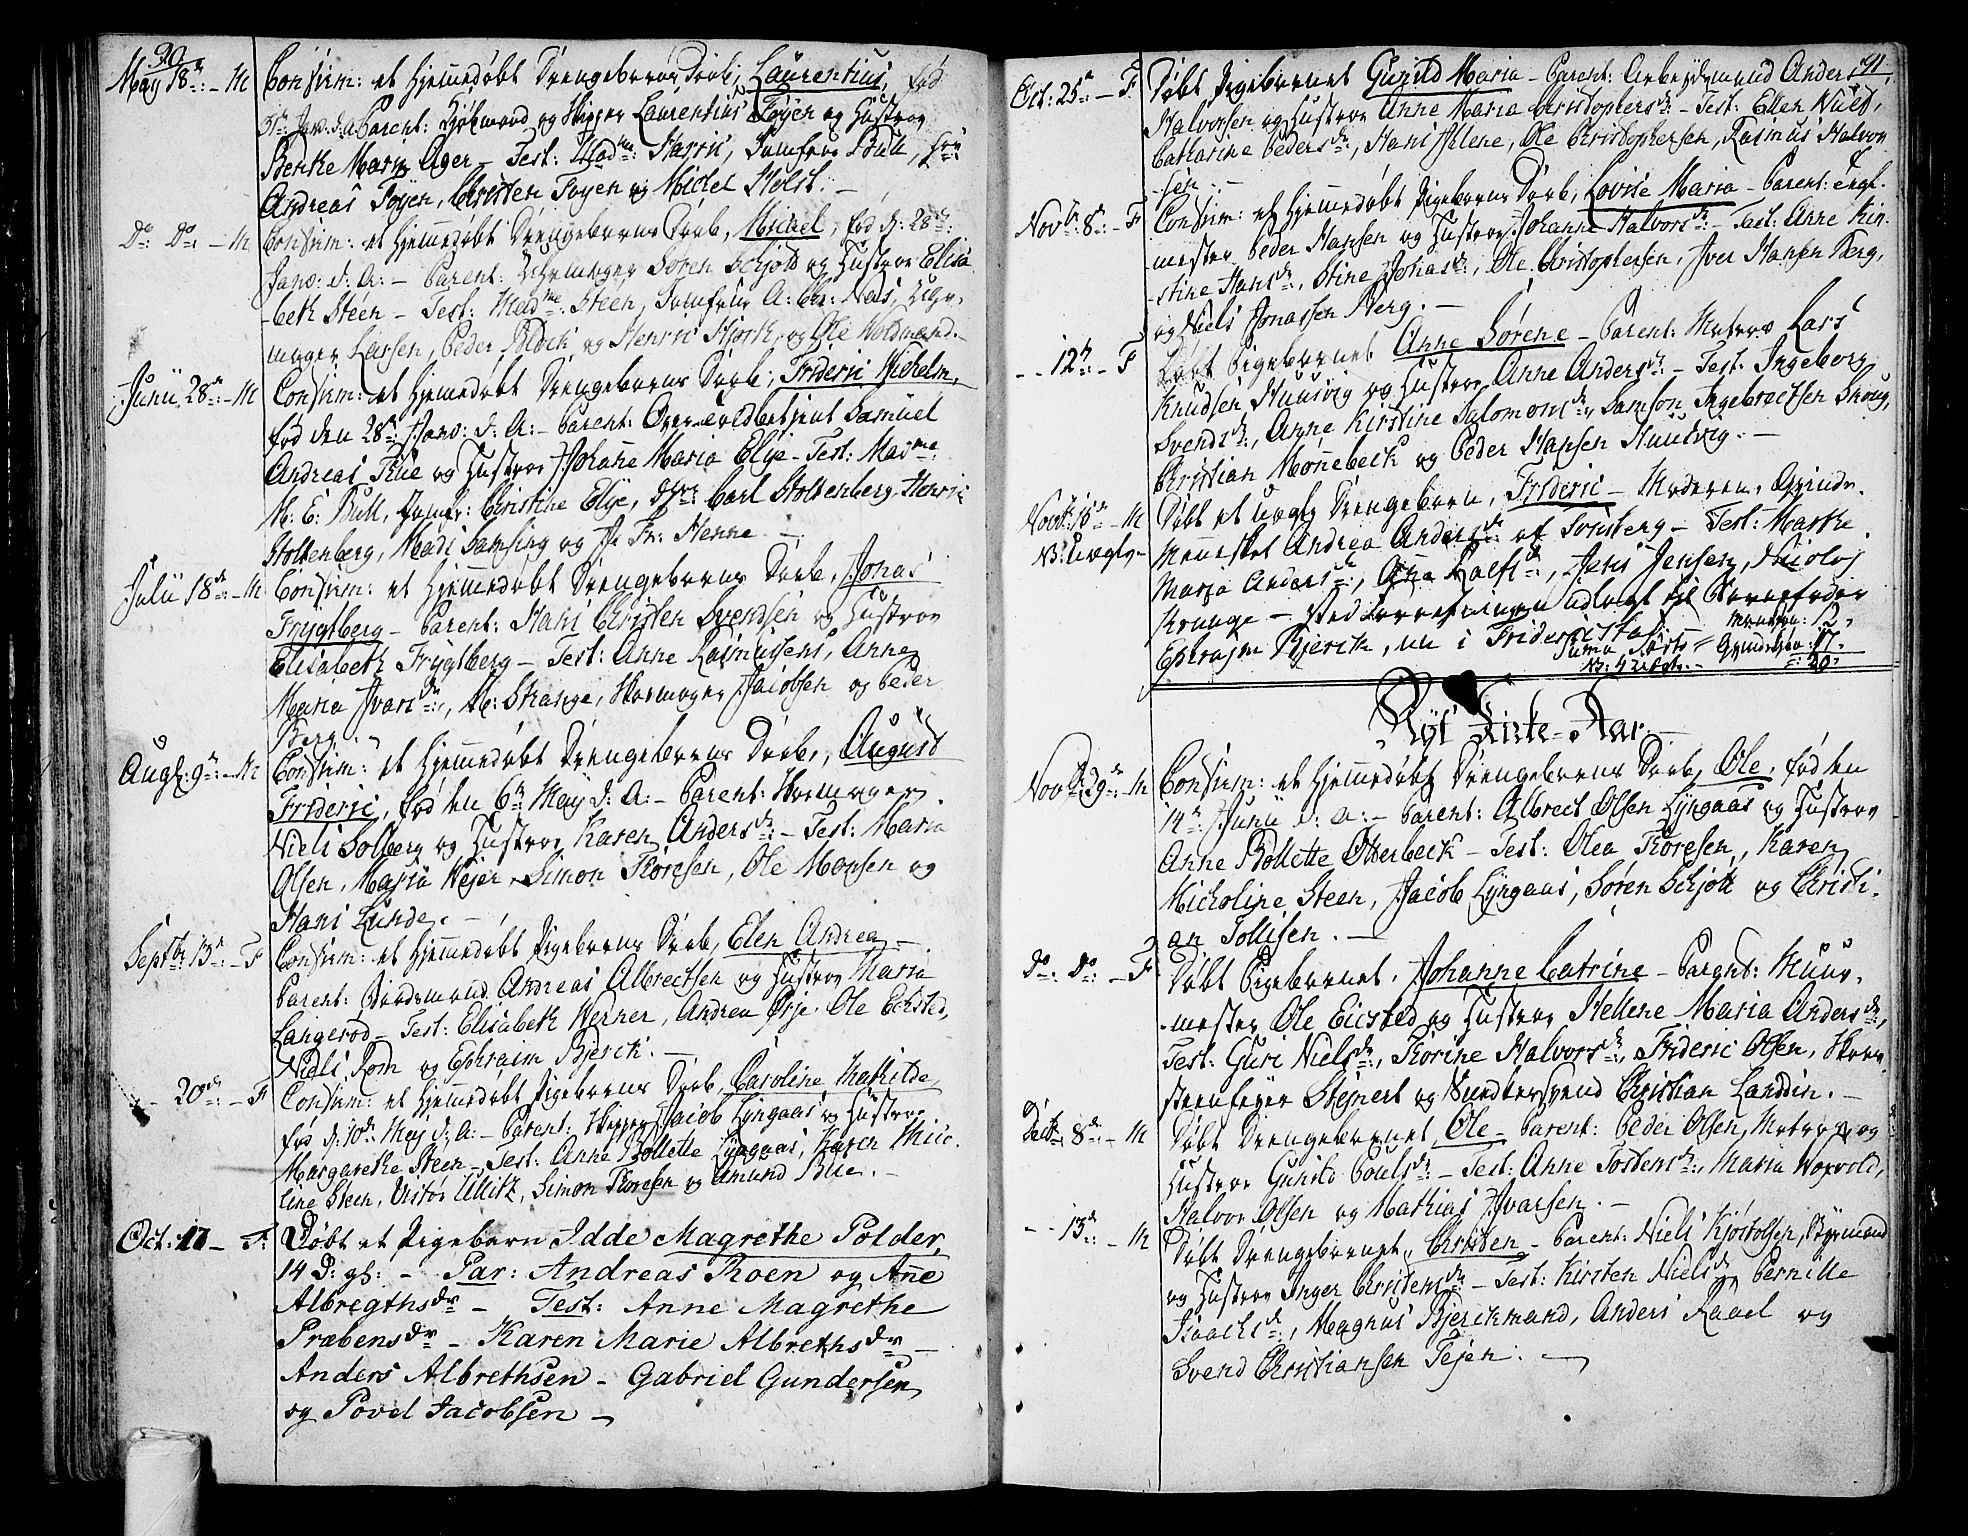 90
May 18de: – M Confirm: et hjemmedøbt Drengebarns Daab, Laurentius, fød
31te Janv. d. a. Parent: Kjøbmand og Skipper Laurentius Føyen og Hustrue
Benthe Maria Ager – Test: Madme: Harris, Jomfrue Bull, Hrr:
Andreas Føyen, Christen Foyen og Michel Holst. –
Do: Do: – M Confirm: et hjemmedøbt Drengebarns Daab, Michael, fød d: 28de:
Janv: d: A: – Parent: Uhrmager Sören Schjøth og Hustrue Elisa
-beth Steen – Test: Madme: Steen, Jomfrue A: Chr: Næs, Uhr-
mager Larsen, Peder Blich og Henric Hjorth, og Ole Holdmand. –
Junii 28de: – M Confirm: et hjemmedøbt Drengebarns Daab, Frideric Wilhelm,
fød den 28de: Janv: d: A: – Parent: Over-toldbetjent Samuel
Andreas Bue og Hustrue Johane Maria Elye – Test: Madme:
M: E: Bull, Jomfr: Christine Elye, Hrr: Carl Stoltenberg, Henric
Stoltenberg, Mads Samsing og J: Fr: Henne. –
Julii 18de: – M Confirm: et hjemmedøbt Drengebarns Daab, Jonas
Frygtberg – Parent: Hans Christen Svendsen og Hustrue
Elisabeth Frygtberg – Test: Anne Rasmusens, Anne
Maria Ivarsdr:, M: Strange, Skomager Jacobsen og Peder
Berg. –
Augs: 9de: – M Confirm: et hjemmedøbt Drengebarns Daab, August
Frideric, fød den 6te May d: A: – Parent: Skomager
Niels Solberg og Hustrue Karen Andersdr: – Test: Maria
Olsen, Maria Wejer, Simon Thoresen, Ole Monsen og
Hans Lunde. –
Septbr: 13de: – F Confirm: et hjemmedøbt Pigebarns Daab, Elen Andrea –
Parent: Andreas Albrechtsen og Hustrue Maria
Langerød – Test: Elisabeth Werner, Andrea Ørje, Ole Echsted,
Niels Rom og Ephraim Bjerck. –
– 20de: – F Confirm: et hjemmedøbt Pigebarns Daab, Caroline Mathilde
fød d: 10de: May d: A: – Parent: Skipper Jacob Lyngaas og Hustrue
Margarethe Steen – Test: Anne Bollette Lyngaas, Karen Micho-
line Steen, Ullitz, Simon Thoresen og Amund Bue. –
Oct: 11 – F: Døbt et Pigebarn Idde Magrethe Polder,
14 D: gl: – Par: Andreas Roen og Añe
Albregthsdr – Test: Anne Magrethe
Præbensdr – Karen Marie Albrethsdr –
Anders Albrethsen – Gabriel Gundersen
og Povel Jacobsen –
91
Oct: 25de: – F Døbt Pigebarnet Gunild Maria – Parent: Arbeydsmand Anders
Halvorsen og Hustrue Anne Maria Christophersdr: – Test: Ellen Niels,
Catharine Pedersdr:, Hans Helene, Ole Christophersen, Rasmus Halvor
-sen. –
Novbr: 8de: – F Confirm: et hjemmedøbt Pigebarns Daab, Lovise Maria – Parent: Tegl-
-mester Peder Hansen og Hustrue Johanne Halvorsdr: – Test: Anne Kir-
-stine Hansdr:, Stine Jonasdr:, Ole Christophersen, Iver Hansen Berg,
og Niels Jonassen Berg. –
– – 12te – F Døbt Pigebarnet Anne Sörene – Parent: Matros Lars
Knudsen Huusvig og Hustrue Anne Andersdr: – Test: Ingeborg
Svendsdr:, Anne Kirstine Salomonsdr:, Samson Ingebrectsen Skoug,
Christian Mönnebeck og Peder Hansen Hundvig. –
Novbr: 16de – M Døbt et uægte Drengebarn, Frideric – Moderen, Qvinde-
N: uægte Mennesket Andrea Andersdr: af Tonsberg – Test: Marthe
Maria Andersdr:, Ane Rolfsdr:, Jens Jensen, Nicolay
Krauge – Ved udlagt til Barnefader
Ephraim Bjerck, nu i Frideriksstad. –
Mandkøn: 12,
Suma Døbte = Qvindekøn: 17,
N: 4 uægte. – = 29,
Nyt Kirke-Aar. –
Novbr: 29de: – M Confirm: et hjemmedøbt Drengebarns Daab, Ole, fød den
14de: Junii d: a: – Parent: Albrect Olsen Lyngaas og Hustrue
Anne Bollette Otterbeck – Test: Olea Thoresen, Karen
Micholine Steen, Jacob Lyngaas, Søren Schjøtt og Christi-
an Tollisen. –
Do: Do: – F Døbt Pigebarnet, Johanne Catrine – Parent: Muur-
-mester Ole Eicsted og Hustrue Hellene Maria Andersdr:,
Test: Guri Nielsdr:, Thorine Halvorsdr:, Frideric Olsen, Skor-
steenfeyer Stejnert og Christian Landin. –
Decbr: 8de: – M Døbt Drengebarnet, Ole – Parent: Peder Olsen, Matros og
Hustrue Gunild Poulsdr: – Test: Anne Tostensdr:, Maria Worvold,
Halvor Olsen og Mathias Ivarsen. –
– – 13de: – M Døbt Drengebarnet, Christen – Parent: Niels Kjøstolsen, Byemand
og Hustrue Inger Christensdr: – Test: Kirsten Nielsdr, Pernille
Isachsdr:, Magnus Bjerckmand, Anders Raael og
Svend Christiansen Tejen. –